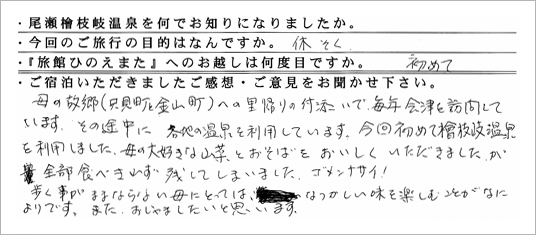 ・尾瀬檜枝岐温泉を何でお知りになりましたか。
・今回のご旅行の目的はなんですか。 休そく
・『旅館ひのえまた』へのお越しは何度目ですか。 初めて
・ご宿泊いただきましたご感想・ご意見をお聞かせ下さい。
母の故郷(只見町金山町)への里帰りの付添いで、毎年会津を訪問して
います。その途中に 各地の温泉を利用しています。今回初めて檜枝岐温泉
を利用しました。母の大好きな山菜とおそばをおいしくいただきましたが
全部食べきれず残してしまいました。ゴメンナサイ!
歩く事がままならない母にとっては、なつかしい味を楽しむことがなに
よりです。また、おじゃましたいと思います。